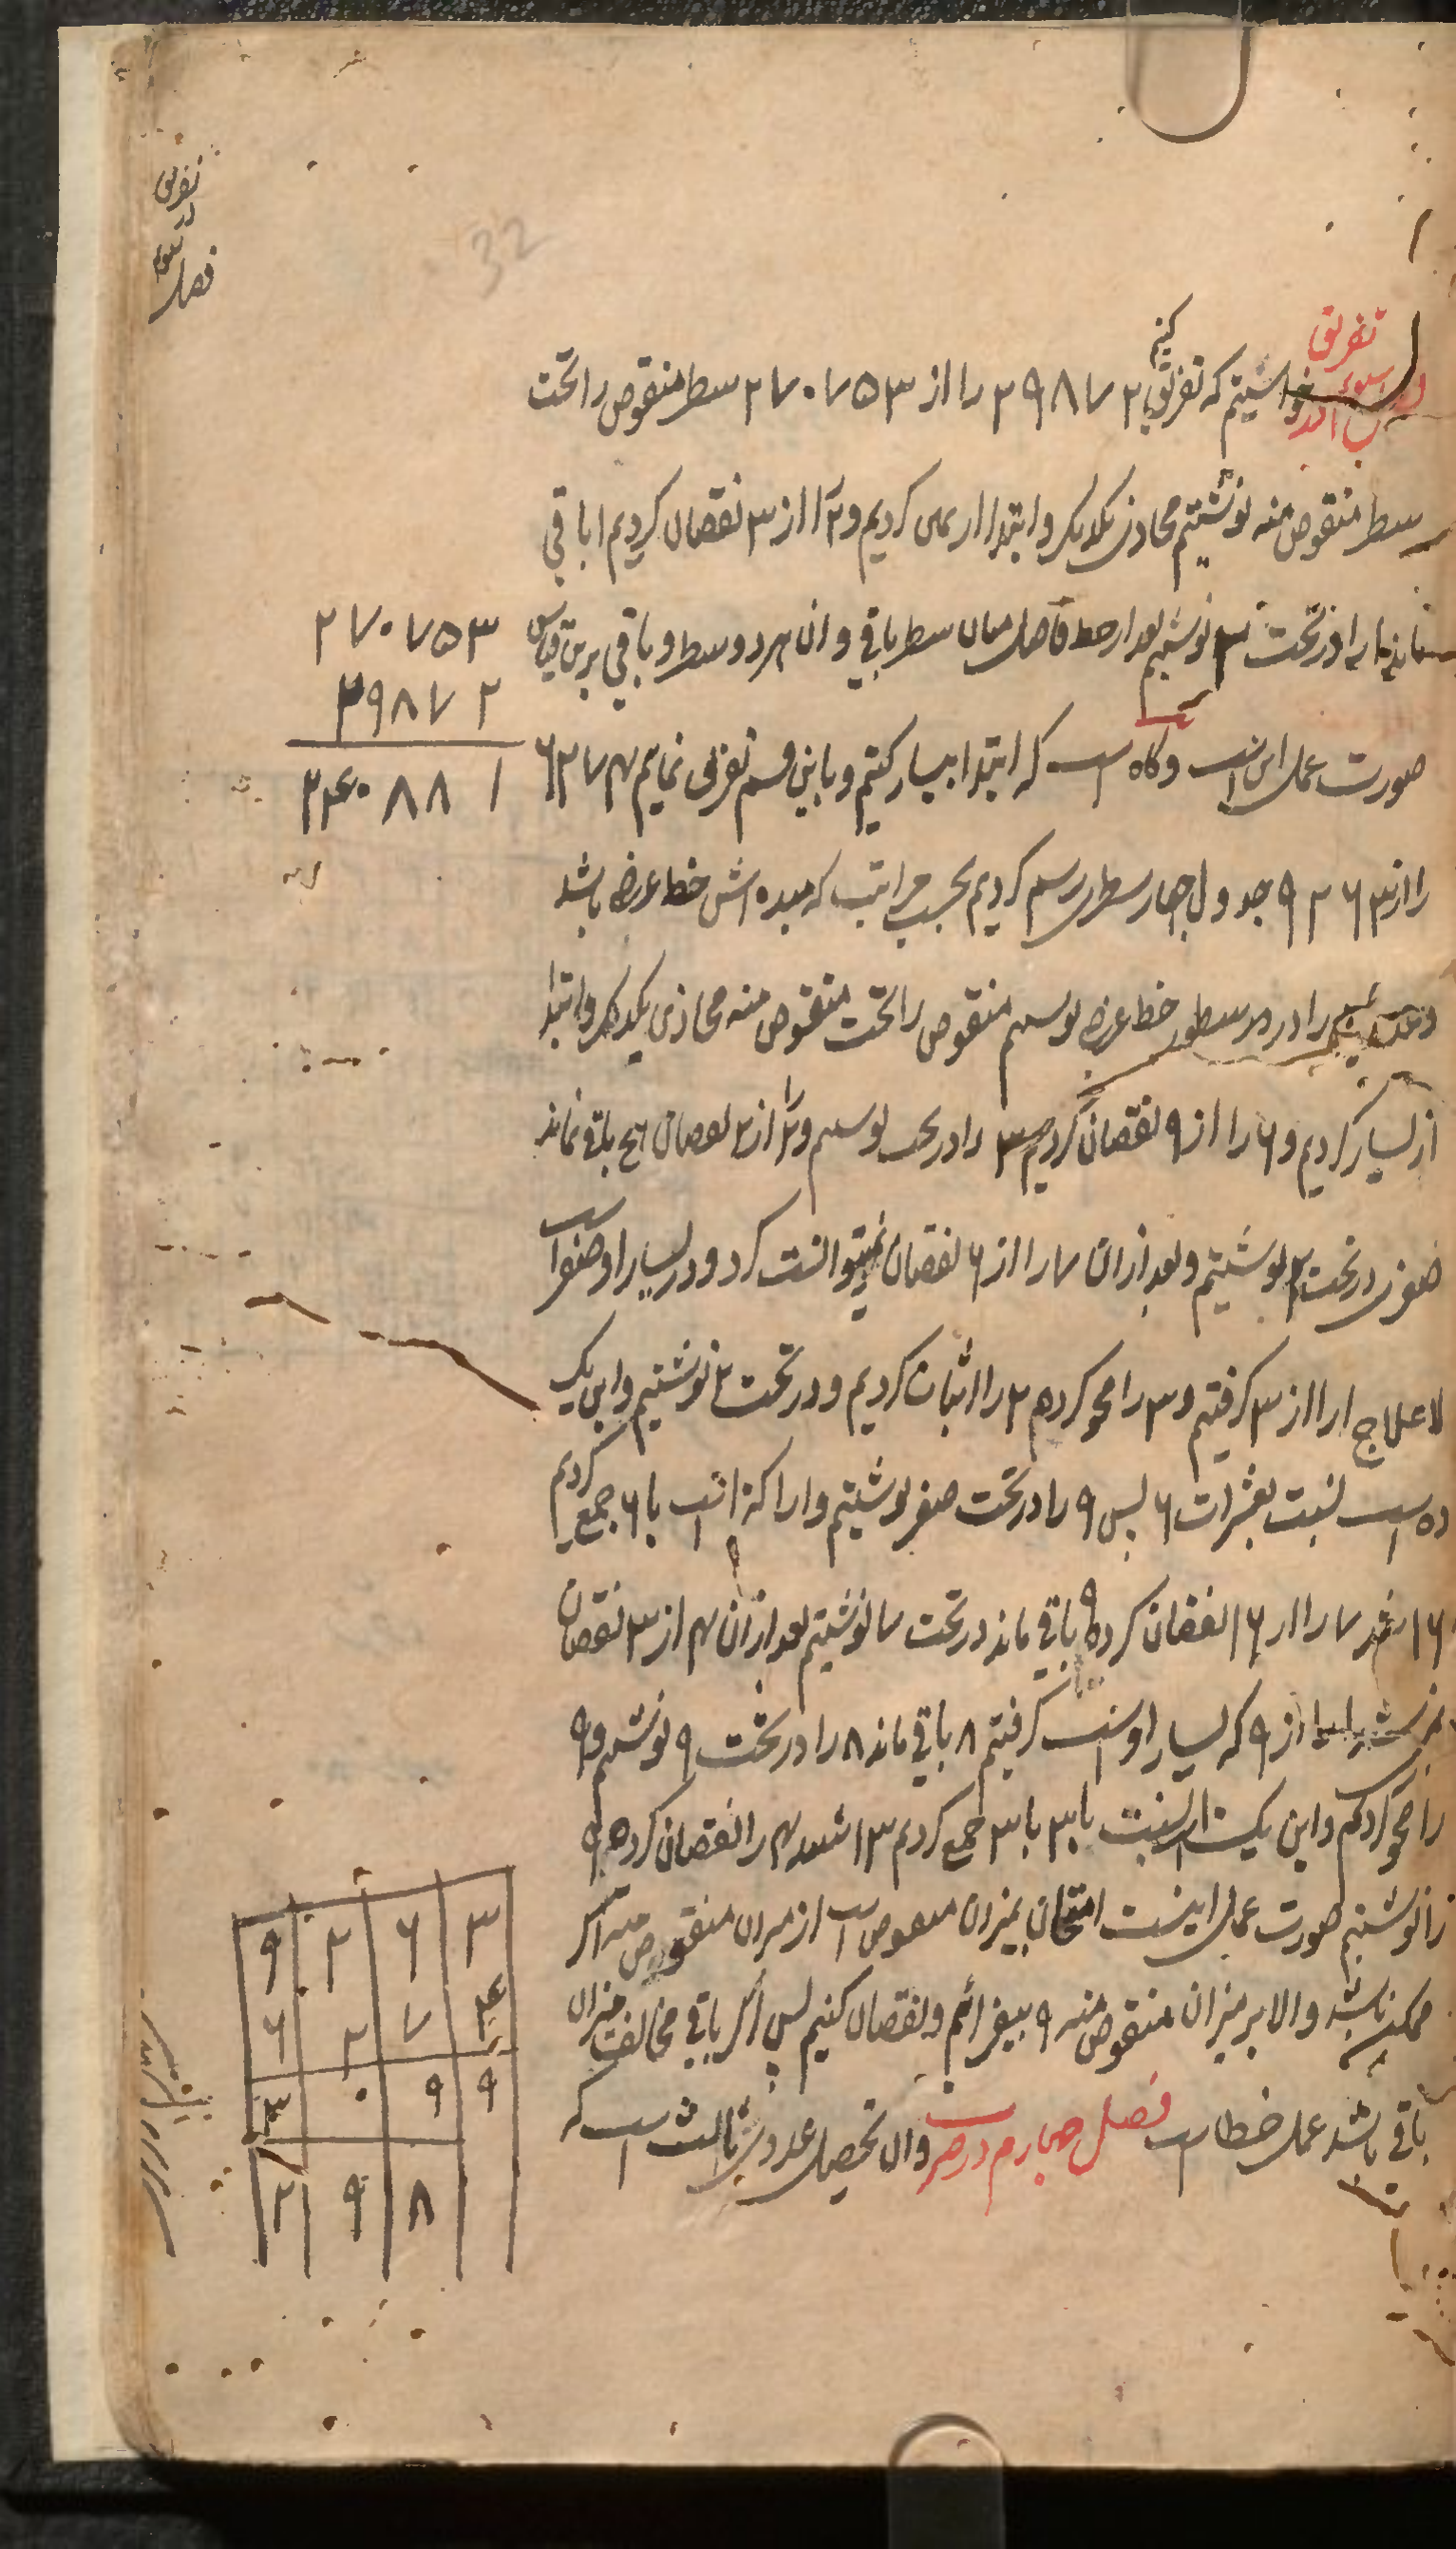 تفریق
در
سوم
فصل
32
تفریق
کنیم
خواستیم که تفریق ۲۹۸۷۲ را از ۲۷۰۷۵۳ سطر منقوص را تحت
سطر منقوص منه نوشتیم محاذی یکدیگر و ابتدا از یمین کردیم و ۲ را از ۳ نقصان کردیم ۱ باقی
ماند ۱ را در تحت ۲ نوشتیم بعد از خط فاصل میان سطر باقی و ان هر دو سطر و باقی برین قیاس
۲۷۰۷۵۳
۲۹۸۷۲
۲۴۰۸۸۱
صورت عمل این است و گاه است که ابتدا بیسار کنیم و باین قسم تفریق نمایم ۶۲۷۴
را از ۹۲۶۳ جدول چهار سطری رسم کردیم بحسب مراتب که مبده اش خط عرض باشد
و عددین را در سطور خط عرض نوشتیم منقوص را تحت منقوص منه محاذی یکدیگر و ابتدا
از یسار کردیم و ۶ را از ۹ نقصان کردیم ۳ را در تحت نوشتیم و ۲ را از ۲ نقصان هیچ باقی نماند
صفری در تحت ۲ نوشتیم و بعد از ان ۷ را از ۶ نقصان نمیتوانست کرد و در یسار او صفر است
لا علاج ۱ را از ۳ گرفتیم و ۳ را محو کردیم ۲ را اثبات کردیم و در تحت ۳ نوشتیم و این یک
ده است نسبت بعشرات ۶ پس ۹ را در تحت صفر نوشتیم و ۱ را که ۱۰ است با ۶ جمع کردیم
۱۶ شد ۷ را از ۱۶ نقصان کرده ۹ باقی ماند در تحت ۷ نوشتیم بعد از ان ۴ از ۳ نقصان
۱ از ۹ که یسار اوست گرفتیم ۸ باقی ماند ۸ را در تحت ۹ نوشتیم و ۹
را محو کردیم و این یک ۱۰ است نسبت با ۳ با ۳ جمع کردیم ۱۳ شد ۴ را نقصان کرده ۹
را نوشتیم صورت عمل اینست امتحان بمیزان منقوص است از میزان منقوص منه اگر
ممکن باشد و الا بر میزان منقوص منه ۹ بیفزائیم و نقصان کنیم پس اگر باقی مخالف میزان
باقی باشد عمل خطا است فصل چهارم در ضرب و ان تحصیل عدد ثالث است که
۹ ۲ ۶ ۳
۶ ۲ ۷ ۴
۳ ۰ ۹ ۹
۲ ۹ ۸